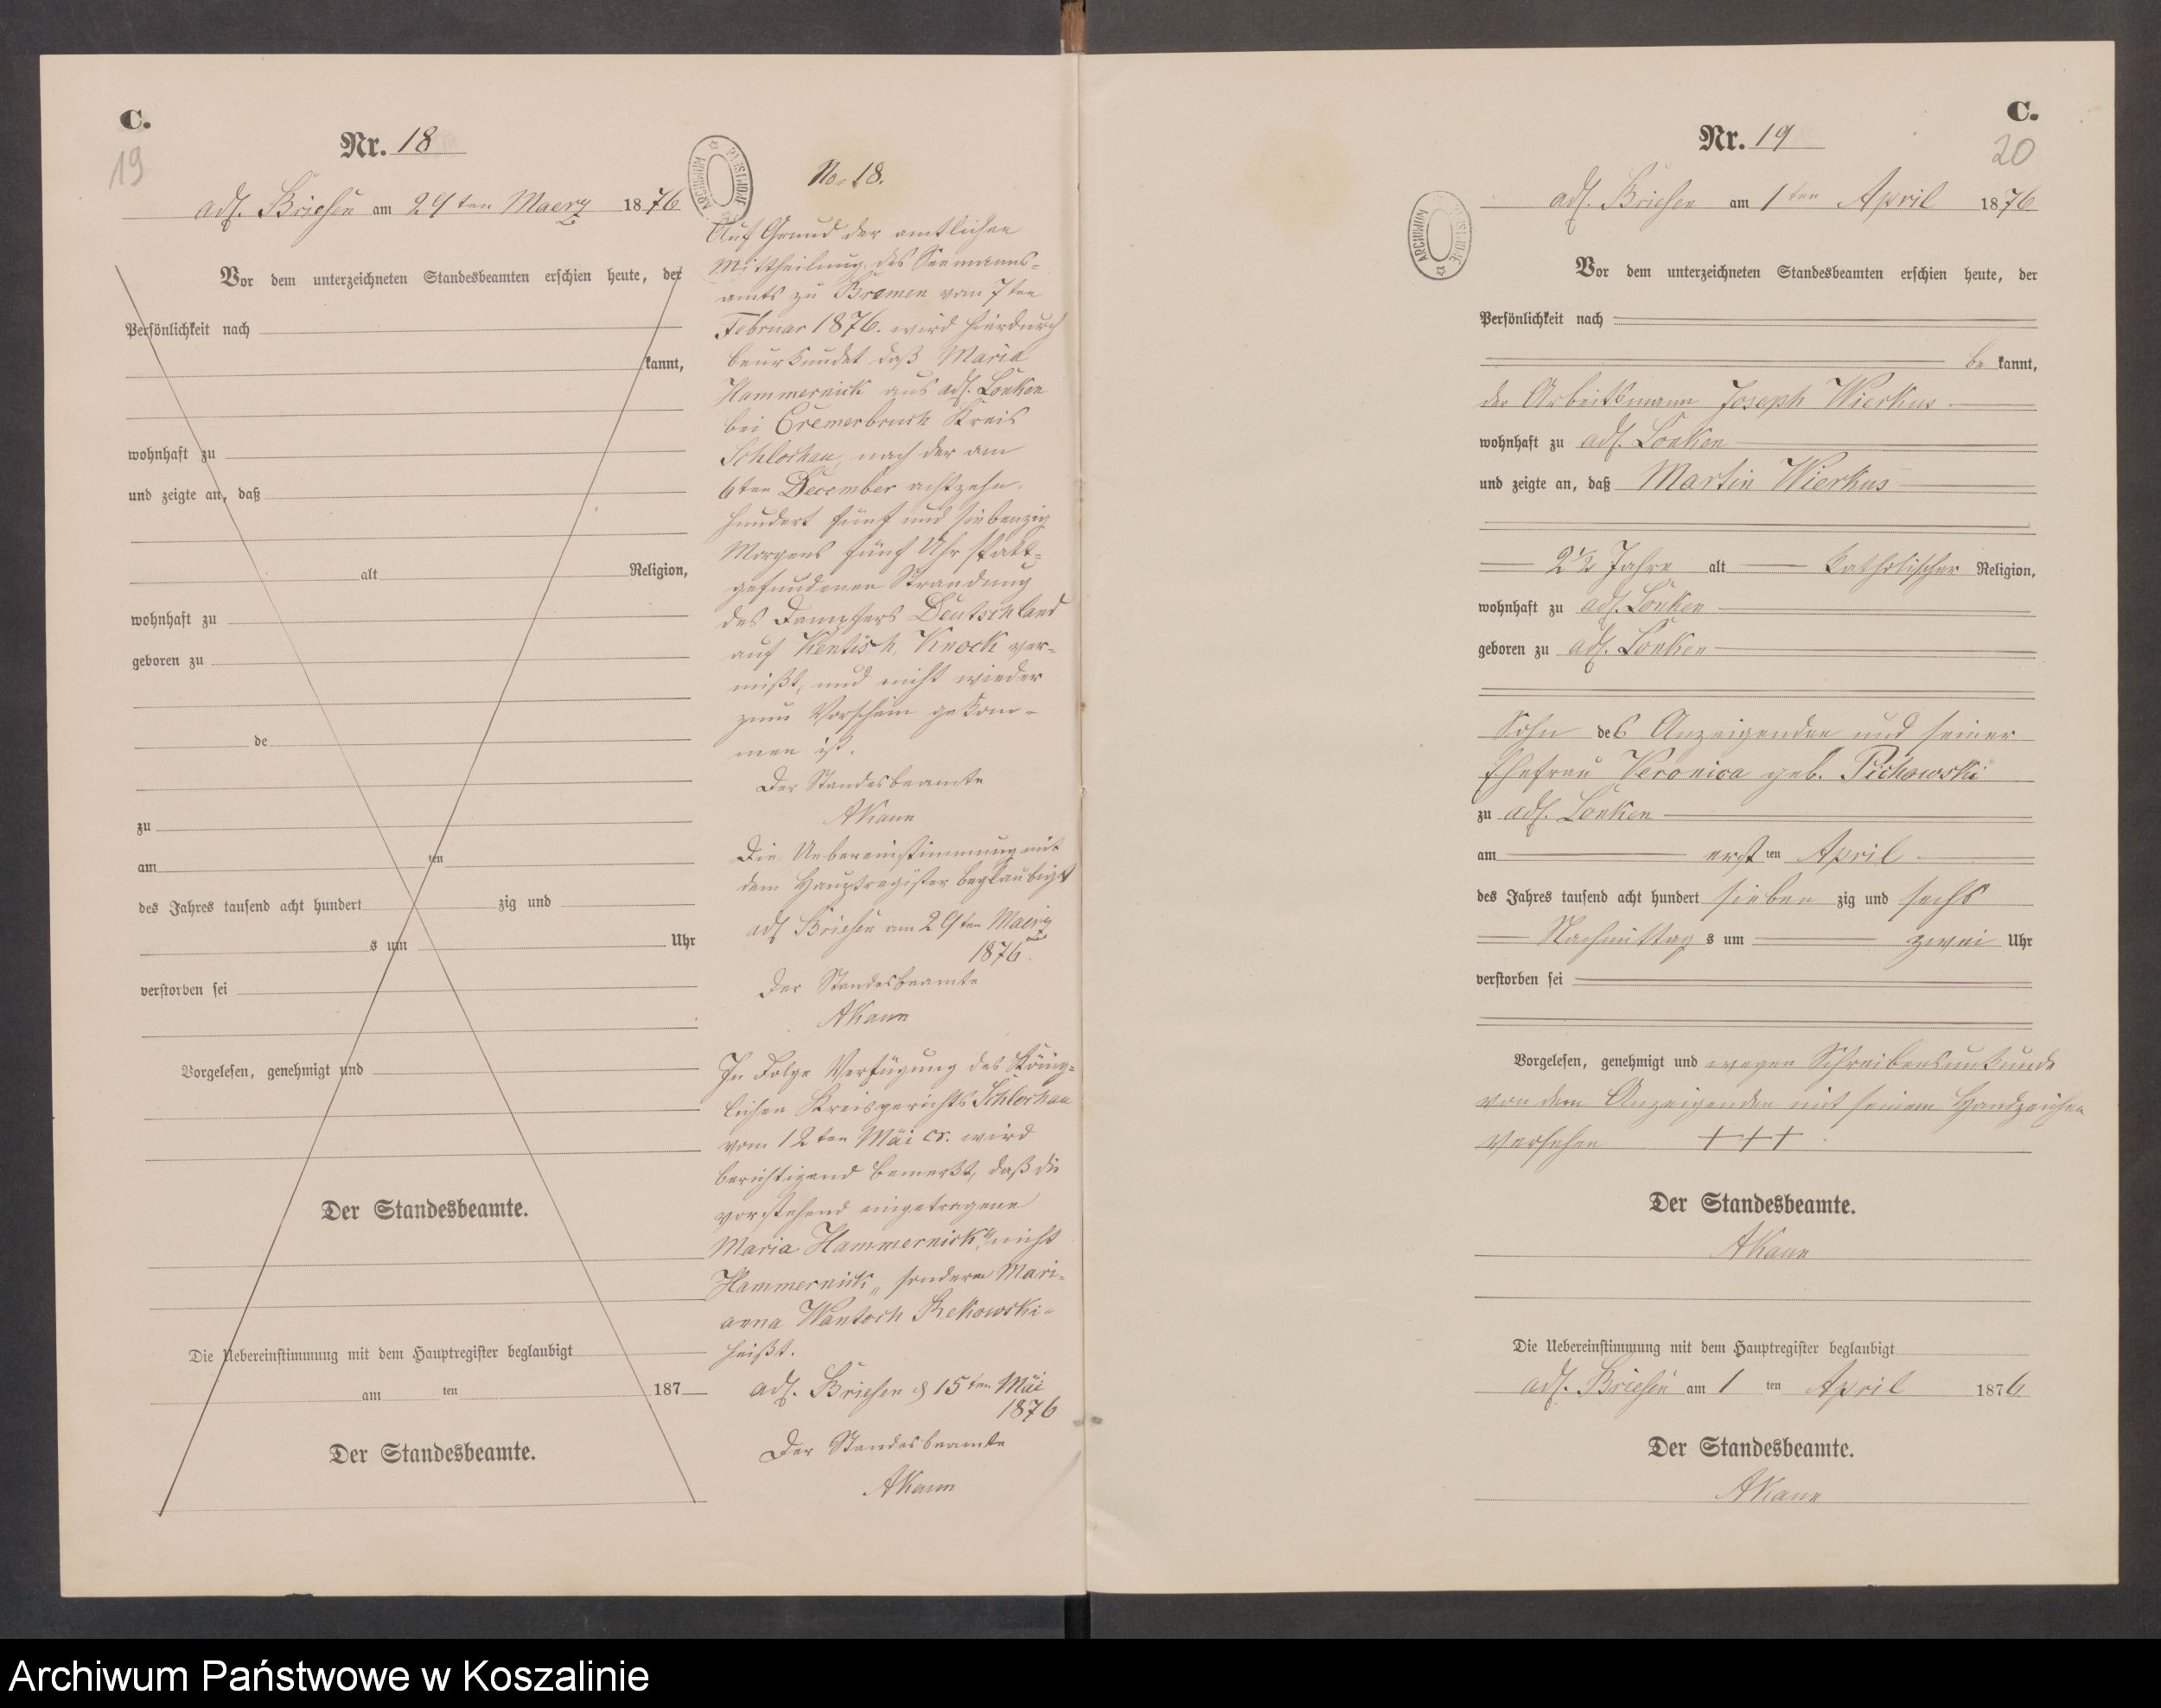 C.
19
Nr. 18
adl. Briesen am 29 ten Maerz 1876
Vor dem unterzeichneten Standesbeamten erschien heute, der
Persönlichkeit nach
kannt,
wohnhaft zu
und zeigte an, daß
alt Religion,
wohnhaft zu
geboren zu
de
zu
am ten
des Jahres tausend acht hundert zig und
s um Uhr
verstorben sei
Vorgelesen, genehmigt und
Der Standesbeamte.
Die Uebereinstimmung mit dem Hauptregister beglaubigt
am ten 187
Der Standesbeamte.
ARCHIWUM PAŃSTWOWE
No. 18.
Auf Grund der amtlichen
Mittheilung des Seemanns-
amts zu Bremen vom 7ten
Februar 1876. wird hierdurch
beurkundet daß Maria
Hammernick aus adl. Lonken
bei Cremerbruch Kreis
Schlochau, nach der am
6ten December achtzehn-
hundert fünf und siebenzig
Morgens fünf Uhr statt-
gefundenen Strandung
des Dampfers Deutschland
auf Kentish Knock ver-
mißt, und nicht wieder
zum Vorschein gekom-
men ist.
Der Standesbeamte
AKann
Die Uebereinstimmung mit
dem Hauptregister beglaubigt
adl Briesen am 29ten Maerz
1876.
Der Standesbeamte
AKann
In Folge Verfügung des König-
lichen Kreisgerichts Schlochau
vom 12ten Mai cr. wird
berichtigend bemerkt, daß die
vorstehend eingetragene
Maria Hammernick "nicht
Hammernick" sondern Mari-
anna Wantoch Rekowski-
heißt.
adl. Briesen d 15ten Mai
1876
Der Standesbeamte
AKann
C.
20
Nr. 19
ARCHIWUM PAŃSTWOWE
adl. Briesen am 1ten April 1876
Vor dem unterzeichneten Standesbeamten erschien heute, der
Persönlichkeit nach
be kannt,
der Arbeitsmann Joseph Wierkus
wohnhaft zu adl. Lonken
und zeigte an, daß Martin Wierkus
2 1/2 Jahre alt katholischer Religion,
wohnhaft zu adl. Lonken
geboren zu adl. Lonken
Sohn des Anzeigenden und seiner
Ehefrau Veronica geb. Pichowski
zu adl. Lonken
am erst ten April
des Jahres tausend acht hundert sieben zig und sechs
Nachmittag s um zwei Uhr
verstorben sei
Vorgelesen, genehmigt und wegen Schreibensunkunde
von dem Anzeigenden mit seinem Handzeichen
versehen +++
Der Standesbeamte.
AKann
Die Uebereinstimmung mit dem Hauptregister beglaubigt
adl. Briesen am 1 ten April 1876
Der Standesbeamte.
AKann
Archiwum Państwowe w Koszalinie